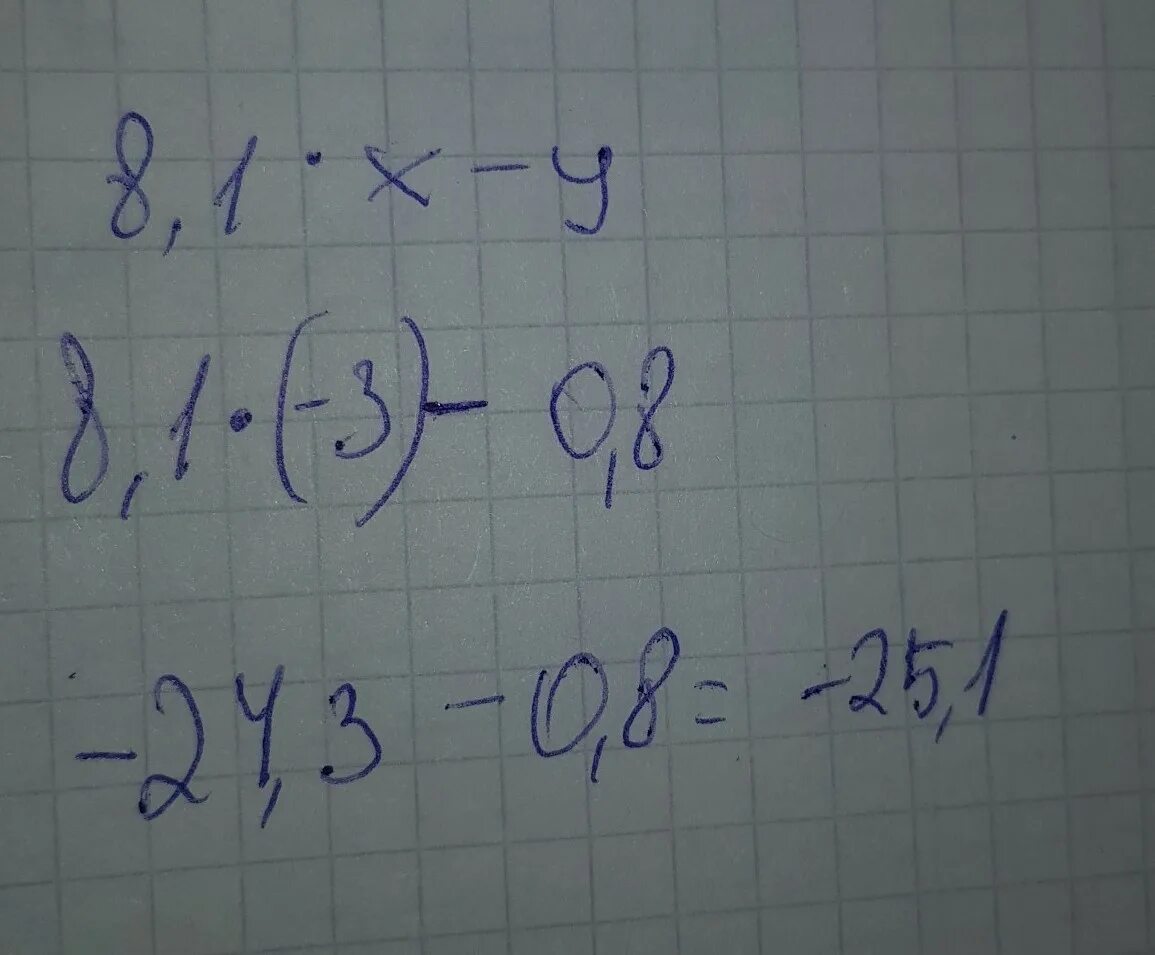 8,1 · x - y
8,1 · (-3) - 0,8
-24,3 - 0,8 = -25,1